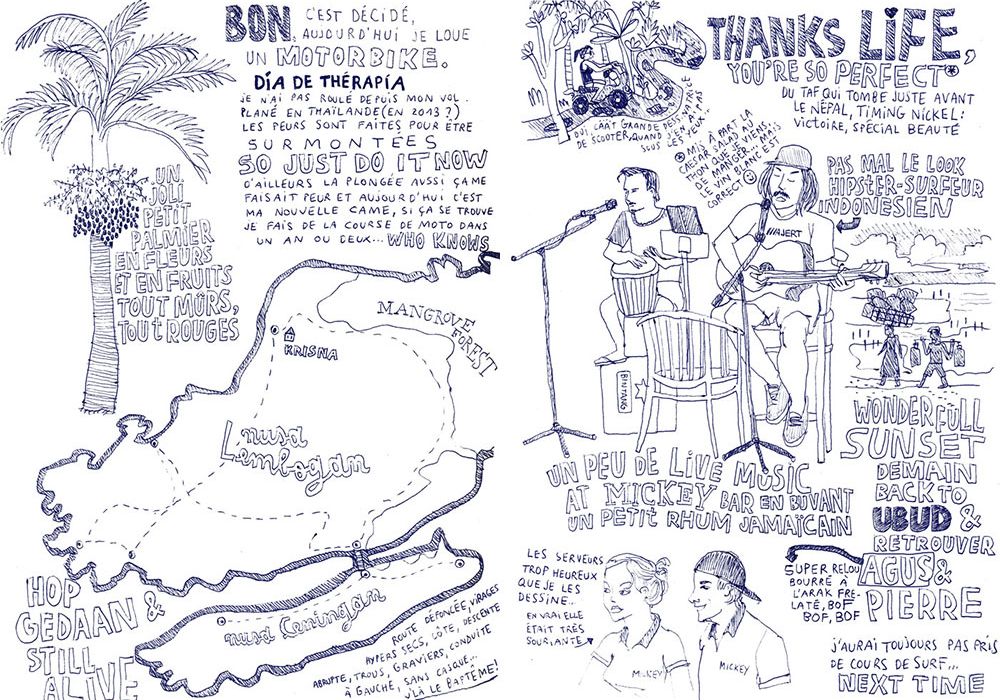 BON, C'EST DÉCIDÉ,
AUJOURD'HUI JE LOUE
UN MOTORBIKE.
DÍA DE THÉRAPÍA
JE N'AI PAS ROULÉ DEPUIS MON VOL
PLANÉ EN THAÏLANDE (EN 2013 ?)
LES PEURS SONT FAITES POUR ÊTRE
SURMONTÉES
SO JUST DO IT NOW
D'AILLEURS LA PLONGÉE AUSSI ÇA ME
FAISAIT PEUR ET AUJOURD'HUI C'EST
MA NOUVELLE CAME, SI ÇA SE TROUVE
JE FAIS DE LA COURSE DE MOTO DANS
UN AN OU DEUX... WHO KNOWS
UN
JOLI
PETIT
PALMIER
EN FLEURS
ET EN FRUITS
TOUT MÛRS,
TOUT ROUGES
MANGROVE
FOREST
KRISNA
nusa
Lembogan
nusa Ceningan
HOP
GEDAAN &
STILL
ALIVE
ROUTE DÉFONCÉE, VIRAGES
HYPERS SECS, CÔTE, DESCENTE
ABRUPTE, TROUS, GRAVIERS, CONDUITE
À GAUCHE, SANS CASQUE...
V'LÀ LE BAPTÊME!
THANKS LIFE,
YOU'RE SO PERFECT*
DU TAF QUI TOMBE JUSTE AVANT
LE NÉPAL, TIMING NICKEL:
VICTOIRE, SPÉCIAL BEAUTÉ
OUI CAHT GRANDE DÉPISTAGE
DE SCOOTER, QUAND Y'EN A PAS
SOUS LES YEUX!
* MIS À PART LA
CAESAR SALAD AU
THON QUE JE VIENS
DE MANGER, MAIS
LE VIN BLANC EST
CORRECT
PAS MAL LE LOOK
HIPSTER-SURFEUR
INDONESIEN
WAJERT
BINTANG
UN PEU DE LIVE MUSIC
AT MICKEY BAR EN BUVANT
UN PETIT RHUM JAMAÏCAIN
WONDERFULL
SUNSET
DEMAIN
BACK TO
UBUD &
RETROUVER
AGUS &
PIERRE
SUPER RELOU
BOURRÉ À
L'ARAK FRE-
LATÉ, BOF
BOF, BOF
LES SERVEURS
TROP HEUREUX
QUE JE LES
DESSINE...
EN VRAI ELLE
ÉTAIT TRÈS
SOURIANTE
MICKEY
MICKEY
J'AURAI TOUJOURS PAS PRIS
DE COURS DE SURF...
NEXT TIME